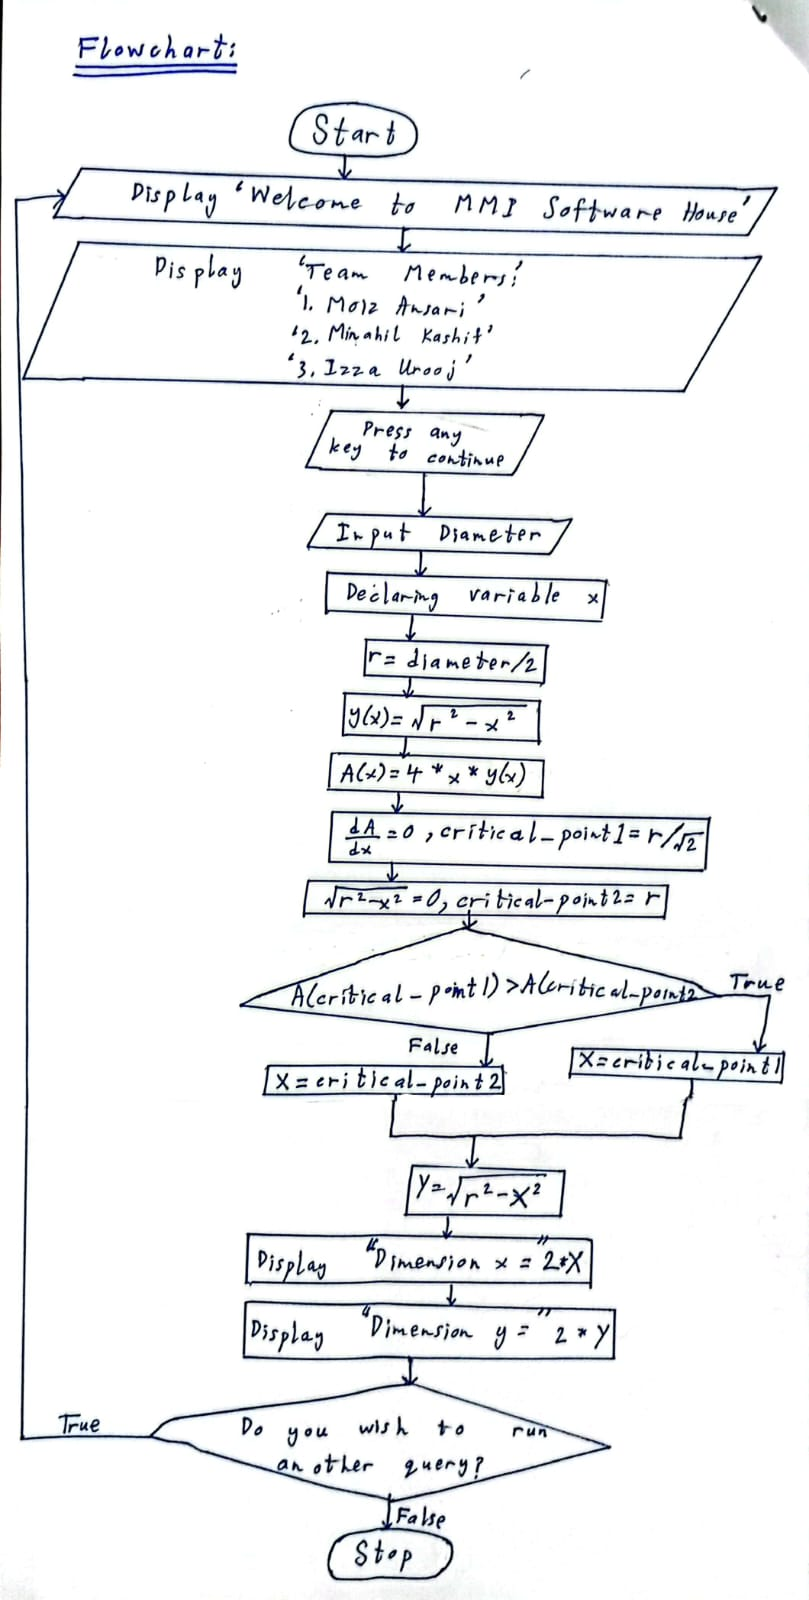 Flowchart:
Start
Display 'Welcome to MMI Software House'
Display 'Team Members:'
'1. Moiz Ansari'
'2. Minahil Kashif'
'3. Izza Urooj'
Press any
key to continue
Input Diameter
Declaring variable x
r= diameter/2
y(x)= √r² - x²
A(x)= 4 * x * y(x)
dA/dx =0, critical_point1= r/√2
√r²-x² =0, critical-point2= r
A(critical-point1)>A(critical-point2
True
False
X=critical-point1
X=critical-point2
Y=√r²-X²
Display "Dimension x =" 2*X
Display "Dimension y =" 2*Y
True
Do you wish to run
another query?
False
Stop